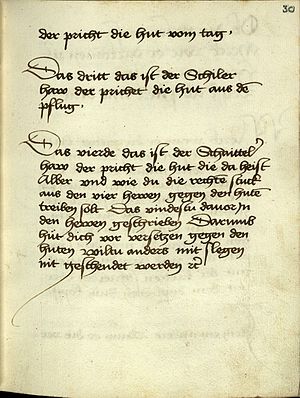 30
der pricht die hut vom tag ·
Das dritt das ist der Schiler
haw der prichet die hut aus dē
pflug ·
Das vierde das ist der Schaittel
haw der pricht die hut die da heist
Alber Vnd wie du die rechte hut
aus den vier hewen gegen den huten
treiben solt Das vindestu dauor In
den hewen geschrieben Darumb
hüt dich vor versetzen gegen den
huten wiltu anders mit slegen
nit geschendet werden